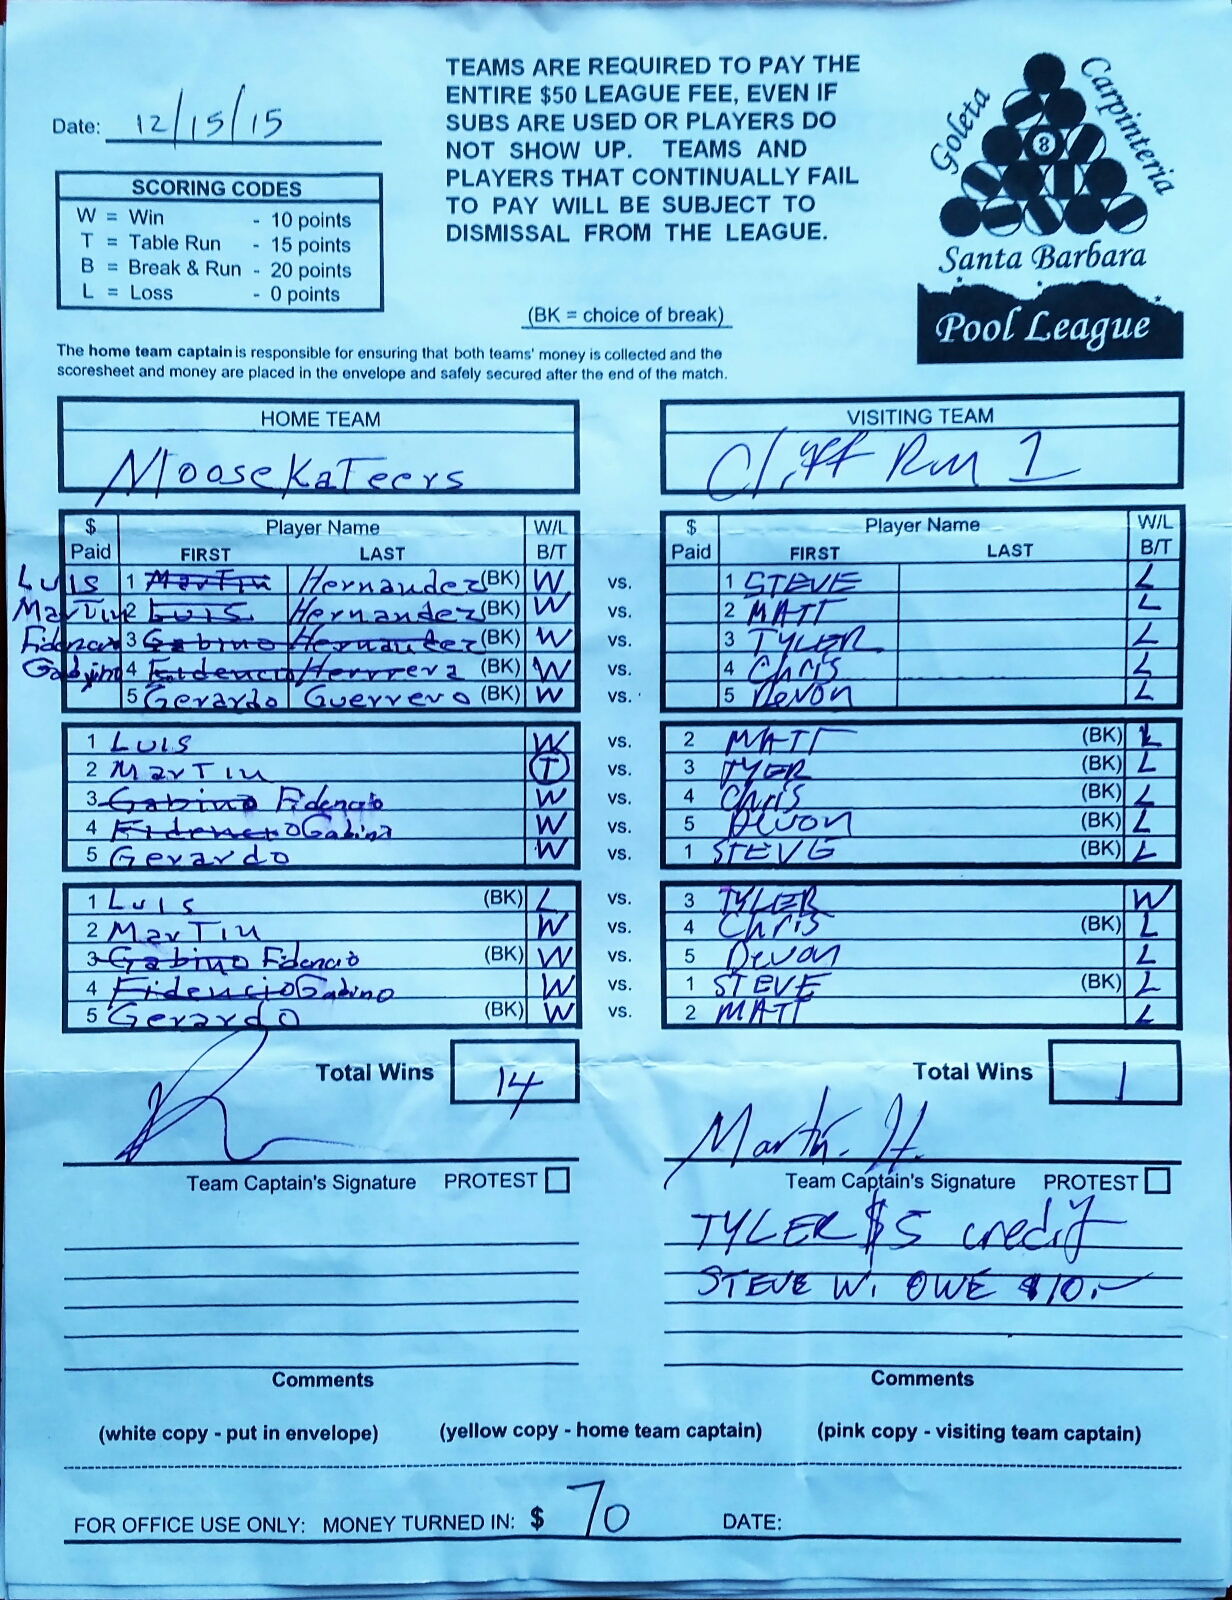 Date: 12/15/15
TEAMS ARE REQUIRED TO PAY THE
ENTIRE $50 LEAGUE FEE, EVEN IF
SUBS ARE USED OR PLAYERS DO
NOT SHOW UP. TEAMS AND
PLAYERS THAT CONTINUALLY FAIL
TO PAY WILL BE SUBJECT TO
DISMISSAL FROM THE LEAGUE.
Goleta
Carpinteria
8
Santa Barbara
Pool League
SCORING CODES
W = Win - 10 points
T = Table Run - 15 points
B = Break & Run - 20 points
L = Loss - 0 points
(BK = choice of break)
The home team captain is responsible for ensuring that both teams' money is collected and the
scoresheet and money are placed in the envelope and safely secured after the end of the match.
HOME TEAM
MooseKaTeers
VISITING TEAM
Cliff Run 1
$ Player Name W/L
Paid FIRST LAST B/T
$ Player Name W/L
Paid FIRST LAST B/T
Luis 1 MarTin Hernandez (BK) W vs. 1 STEVE L
MarTin 2 Luis Hernandez (BK) W vs. 2 MATT L
Fidencio 3 Gabino Hernandez (BK) W vs. 3 TYLER L
Gabino 4 Fidencio Herrera (BK) W vs. 4 Chris L
5 Gerardo Guerrero (BK) W vs. 5 Devon L
1 Luis W vs. 2 MATT (BK) L
2 MarTin T vs. 3 TYER (BK) L
3 Gabino Fidencio W vs. 4 Chris (BK) L
4 Fidencio Gabino W vs. 5 Devon (BK) L
5 Gerardo W vs. 1 STEVE (BK) L
1 Luis (BK) L vs. 3 TYLER W
2 MarTin W vs. 4 Chris (BK) L
3 Gabino Fidencio (BK) W vs. 5 Devon L
4 Fidencio Gabino W vs. 1 STEVE (BK) L
5 Gerardo (BK) W vs. 2 MATT L
Total Wins 14
Total Wins 1
Martin. H.
Team Captain's Signature PROTEST
Team Captain's Signature PROTEST
TYLER $5 credit
STEVE W. OWE $10.-
Comments
Comments
(white copy - put in envelope) (yellow copy - home team captain) (pink copy - visiting team captain)
FOR OFFICE USE ONLY: MONEY TURNED IN: $ 70 DATE: